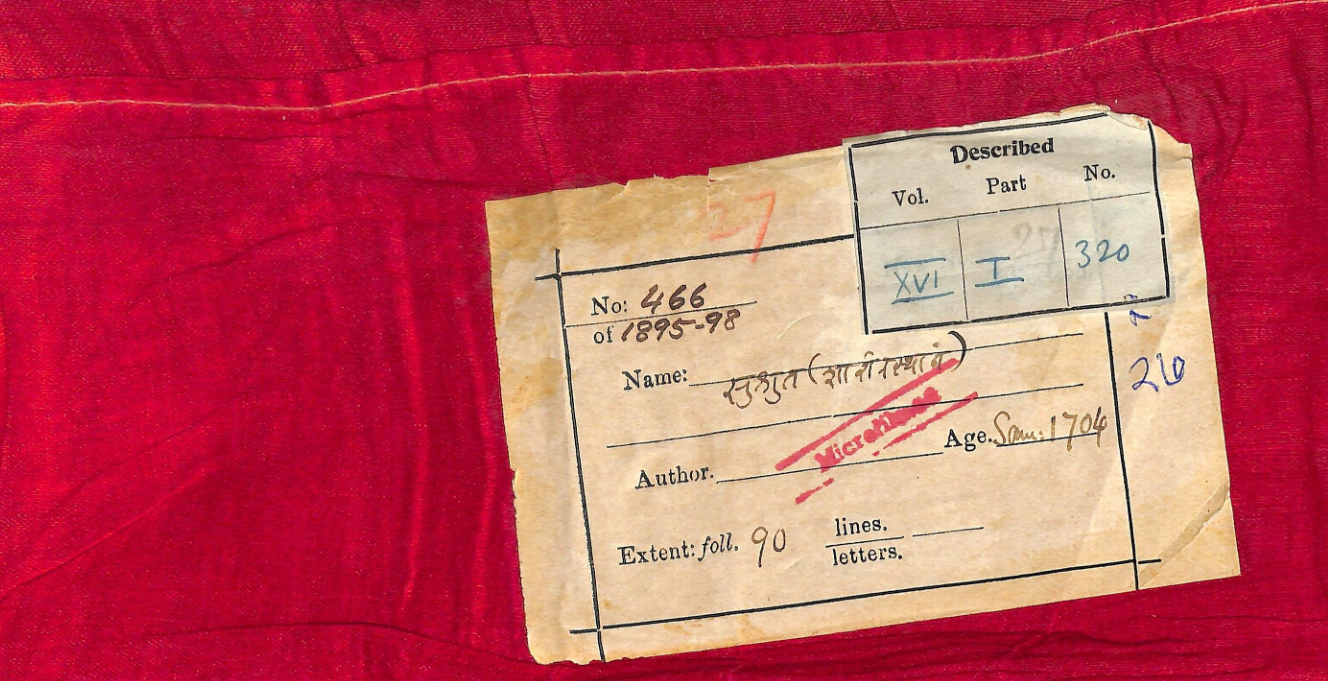 Described
Vol. Part No.
XVI I 320
27
No: 466
of 1895-98
Name: सुश्रुत (शारीरस्थानं)
26
Microfilmed
Age. Sam: 1704
Author.
Extent: foll. 90 lines.
letters.